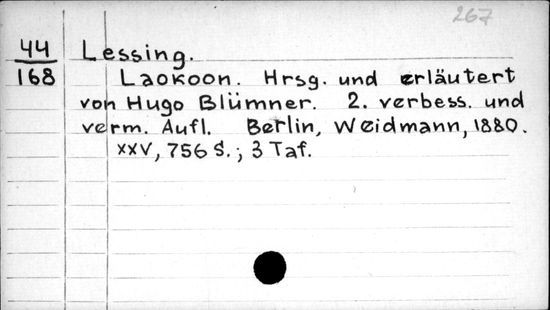 267
44
168
Lessing.
Laokoon. Hrsg. und erläutert
von Hugo Blümner. 2. verbess. und
verm. Aufl. Berlin, Weidmann, 1880.
XXV, 756 S.; 3 Taf.